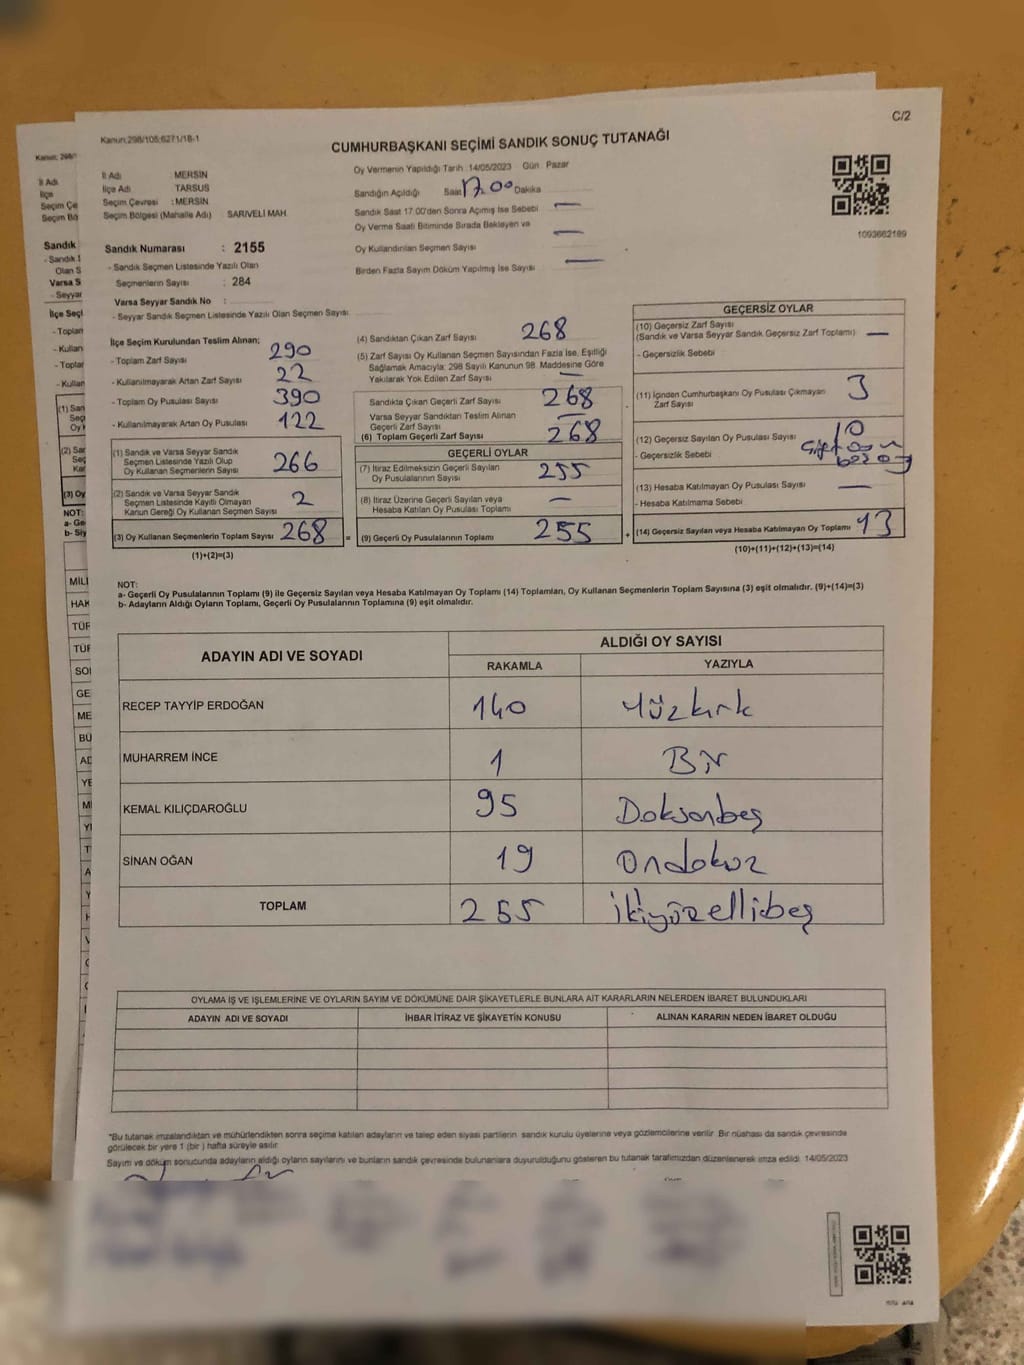 C/2
Kanun:298/105;6271/18-1
CUMHURBAŞKANI SEÇİMİ SANDIK SONUÇ TUTANAĞI
İl Adı : MERSİN
İlçe Adı TARSUS
Seçim Çevresi : MERSİN
Seçim Bölgesi (Mahalle Adı) SARIVELİ MAH.
Sandık Numarası : 2155
- Sandık Seçmen Listesinde Yazılı Olan
Seçmenlerin Sayısı : 284
Varsa Seyyar Sandık No :
- Seyyar Sandık Seçmen Listesinde Yazılı Olan Seçmen Sayısı:
Oy Vermenin Yapıldığı Tarih :14/05/2023 Gün: Pazar
Sandığın Açıldığı Saat 17.00 Dakika
Sandık Saat 17:00'den Sonra Açımış İse Sebebi —
Oy Verme Saati Bitiminde Sırada Bekleyen ve —
Oy Kullandırılan Seçmen Sayısı
Birden Fazla Sayım Döküm Yapılmış İse Sayısı —
1093662189
İlçe Seçim Kurulundan Teslim Alınan;
- Toplam Zarf Sayısı 290
- Kullanılmayarak Artan Zarf Sayısı 22
- Toplam Oy Pusulası Sayısı 390
- Kullanılmayarak Artan Oy Pusulası 122
(1) Sandık ve Varsa Seyyar Sandık
Seçmen Listesinde Yazılı Olup
Oy Kullanan Seçmenlerin Sayısı 266
(2) Sandık ve Varsa Seyyar Sandık
Seçmen Listesinde Kayıtlı Olmayan
Kanun Gereği Oy Kullanan Seçmen Sayısı 2
(3) Oy Kullanan Seçmenlerin Toplam Sayısı 268 =
(1)+(2)=(3)
(4) Sandıktan Çıkan Zarf Sayısı 268
(5) Zarf Sayısı Oy Kullanan Seçmen Sayısından Fazla İse, Eşitliği
Sağlamak Amacıyla; 298 Sayılı Kanunun 98. Maddesine Göre
Yakılarak Yok Edilen Zarf Sayısı —
Sandıkta Çıkan Geçerli Zarf Sayısı 268
Varsa Seyyar Sandıktan Teslim Alınan
Geçerli Zarf Sayısı —
(6) Toplam Geçerli Zarf Sayısı 268
GEÇERLİ OYLAR
(7) İtiraz Edilmeksizin Geçerli Sayılan
Oy Pusulalarının Sayısı 255
(8) İtiraz Üzerine Geçerli Sayılan veya
Hesaba Katılan Oy Pusulası Toplamı —
(9) Geçerli Oy Pusulalarının Toplamı 255 +
GEÇERSİZ OYLAR
(10) Geçersiz Zarf Sayısı
(Sandık ve Varsa Seyyar Sandık Geçersiz Zarf Toplamı) —
- Geçersizlik Sebebi
(11) İçinden Cumhurbaşkanı Oy Pusulası Çıkmayan
Zarf Sayısı 3
(12) Geçersiz Sayılan Oy Pusulası Sayısı 10
- Geçersizlik Sebebi
(13) Hesaba Katılmayan Oy Pusulası Sayısı —
- Hesaba Katılmama Sebebi
(14) Geçersiz Sayılan veya Hesaba Katılmayan Oy Toplamı 13
(10)+(11)+(12)+(13)=(14)
NOT:
a- Geçerli Oy Pusulalarının Toplamı (9) ile Geçersiz Sayılan veya Hesaba Katılmayan Oy Toplamı (14) Toplamları, Oy Kullanan Seçmenlerin Toplam Sayısına (3) eşit olmalıdır. (9)+(14)=(3)
b- Adayların Aldığı Oyların Toplamı, Geçerli Oy Pusulalarının Toplamına (9) eşit olmalıdır.
ADAYIN ADI VE SOYADI ALDIĞI OY SAYISI
RAKAMLA YAZIYLA
RECEP TAYYİP ERDOĞAN 140 Yüzkırk
MUHARREM İNCE 1 Bir
KEMAL KILIÇDAROĞLU 95 Doksanbeş
SİNAN OĞAN 19 Ondokuz
TOPLAM 255 ikiyüzellibeş
OYLAMA İŞ VE İŞLEMLERİNE VE OYLARIN SAYIM VE DÖKÜMÜNE DAİR ŞİKAYETLERLE BUNLARA AİT KARARLARIN NELERDEN İBARET BULUNDUKLARI
ADAYIN ADI VE SOYADI İHBAR İTİRAZ VE ŞİKAYETİN KONUSU ALINAN KARARIN NEDEN İBARET OLDUĞU
*Bu tutanak imzalandıktan ve mühürlendikten sonra seçime katılan adayların ve talep eden siyasi partilerin sandık kurulu üyelerine veya gözlemcilerine verilir. Bir nüshası da sandık çevresinde
görülecek bir yere 1 (bir) hafta süreyle asılır.
Sayım ve döküm sonucunda adayların aldığı oyların sayılarını ve bunların sandık çevresinde bulunanlara duyurulduğunu gösteren bu tutanak tarafımızdan düzenlenerek imza edildi. 14/05/2023